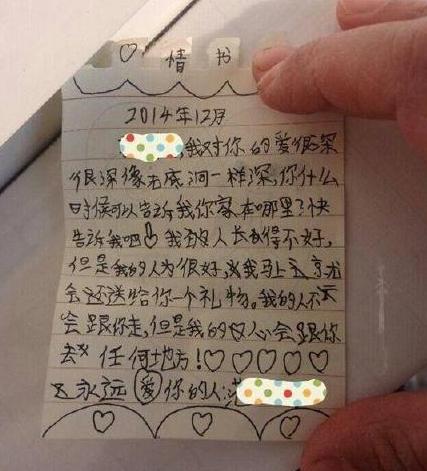 情书
2014年12月
我对你的爱很深
很深像无底洞一样深,你什么
时候可以告诉我你家在哪里?快
告诉我吧!我的人长的得不好,
但是我的人为很好,我马上
会还送给你一个礼物。我的人不
会跟你走,但是我的心会跟你
去任何地方!♡♡♡♡♡
永远爱你的人: